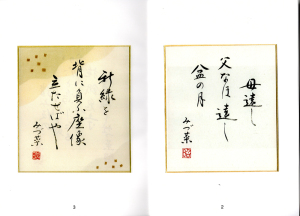 母遠し
父なほ遠し
盆の月
みづ葉
2
新緑を
背に負ふ座像
立たせばや
みづ葉
3